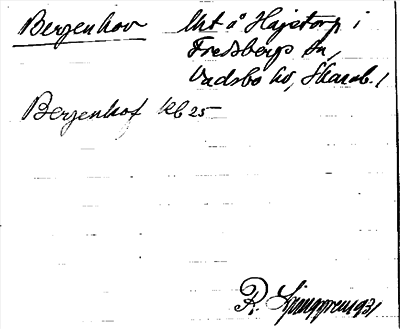 Bergenhov Lht å Hajstorp i
Fredsbergs sn,
Vadsbo hd, Skarab. l
Bergenhof Kb 25
R. Ljunggren 1931